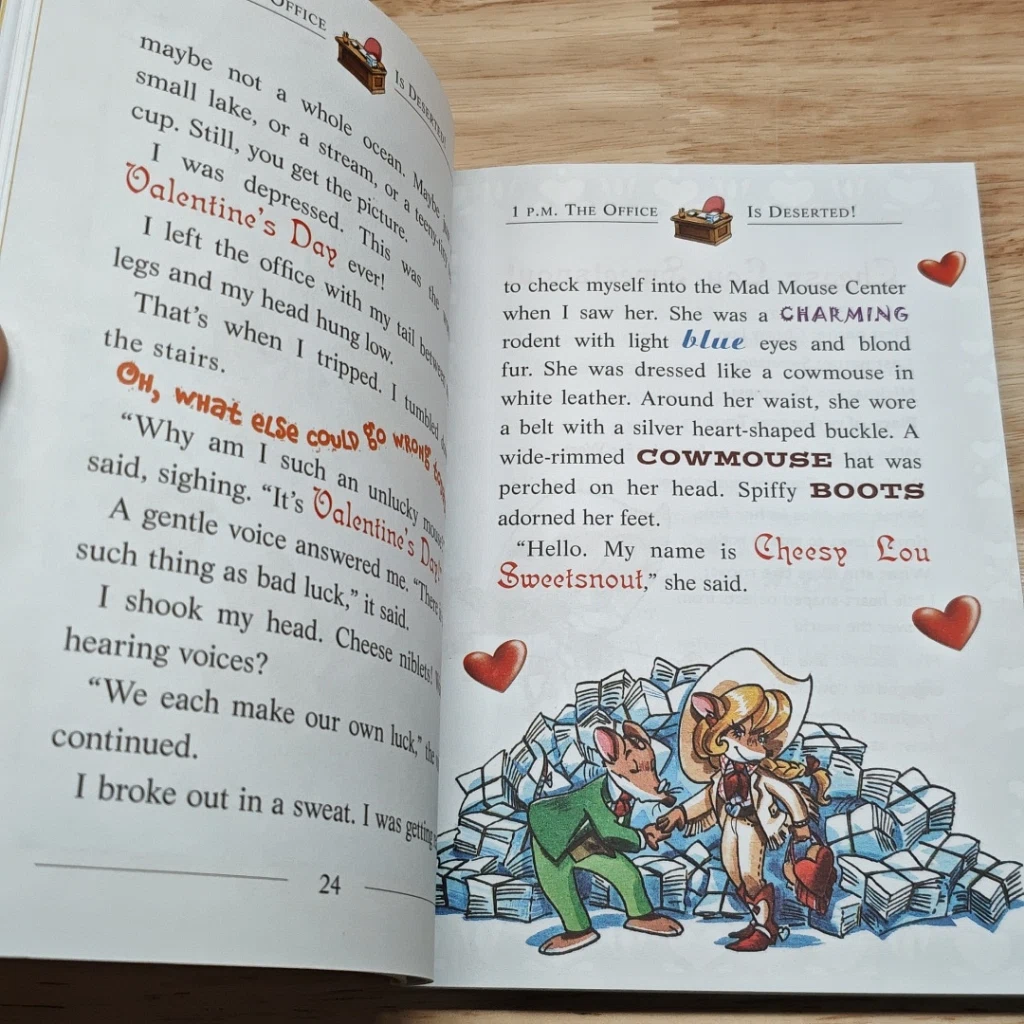 OFFICE
IS DESERTED!
maybe not a whole ocean. Maybe
small lake, or a stream, or a teeny-tiny
cup. Still, you get the picture.
I was depressed. This was the
Valentine's Day ever!
I left the office with my tail between
legs and my head hung low.
That's when I tripped. I tumbled
the stairs.
OH, WHAT ELSE COULD GO WRONG
"Why am I such an unlucky mouse
said, sighing. "It's Valentine's Day!
A gentle voice answered me. "There
such thing as bad luck," it said.
I shook my head. Cheese niblets!
hearing voices?
"We each make our own luck," the
continued.
I broke out in a sweat. I was getting
24
1 P.M. THE OFFICE IS DESERTED!
to check myself into the Mad Mouse Center
when I saw her. She was a CHARMING
rodent with light blue eyes and blond
fur. She was dressed like a cowmouse in
white leather. Around her waist, she wore
a belt with a silver heart-shaped buckle. A
wide-rimmed COWMOUSE hat was
perched on her head. Spiffy BOOTS
adorned her feet.
"Hello. My name is Cheesy Lou
Sweetsnout," she said.